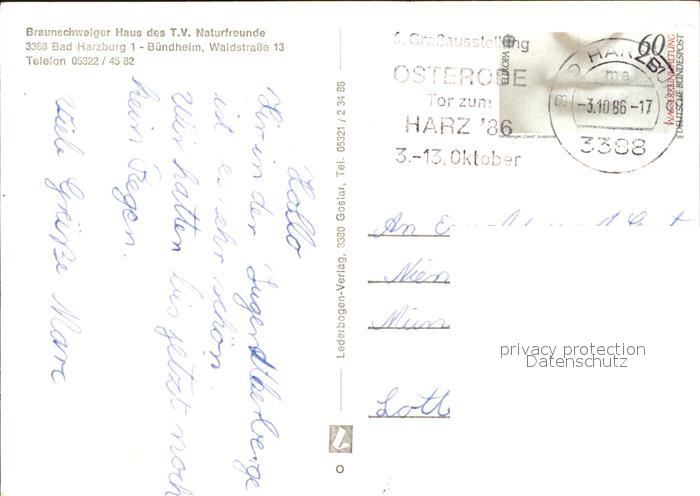 Braunschweiger Haus des T.V. Naturfreunde
3388 Bad Harzburg 1 - Bündheim, Waldstraße 13
Telefon 05322 / 45 82
Hallo
Hir in der Jugendherberge
ist es sehr schön.
Wir hatten bis jetzt noch
kein Regen.
Viele Grüße Marc
Lederbogen-Verlag, 3380 Goslar, Tel. 05321 / 2 34 86
Großausstellung
OSTERODE
Tor zum
HARZ '86
3.-13. Oktober
EUROPA
60
DEUTSCHE BUNDESPOST
HARZB
ma
-3.10 86 -17
3388
An
Nien
Mün
Lott
privacy protection
Datenschutz